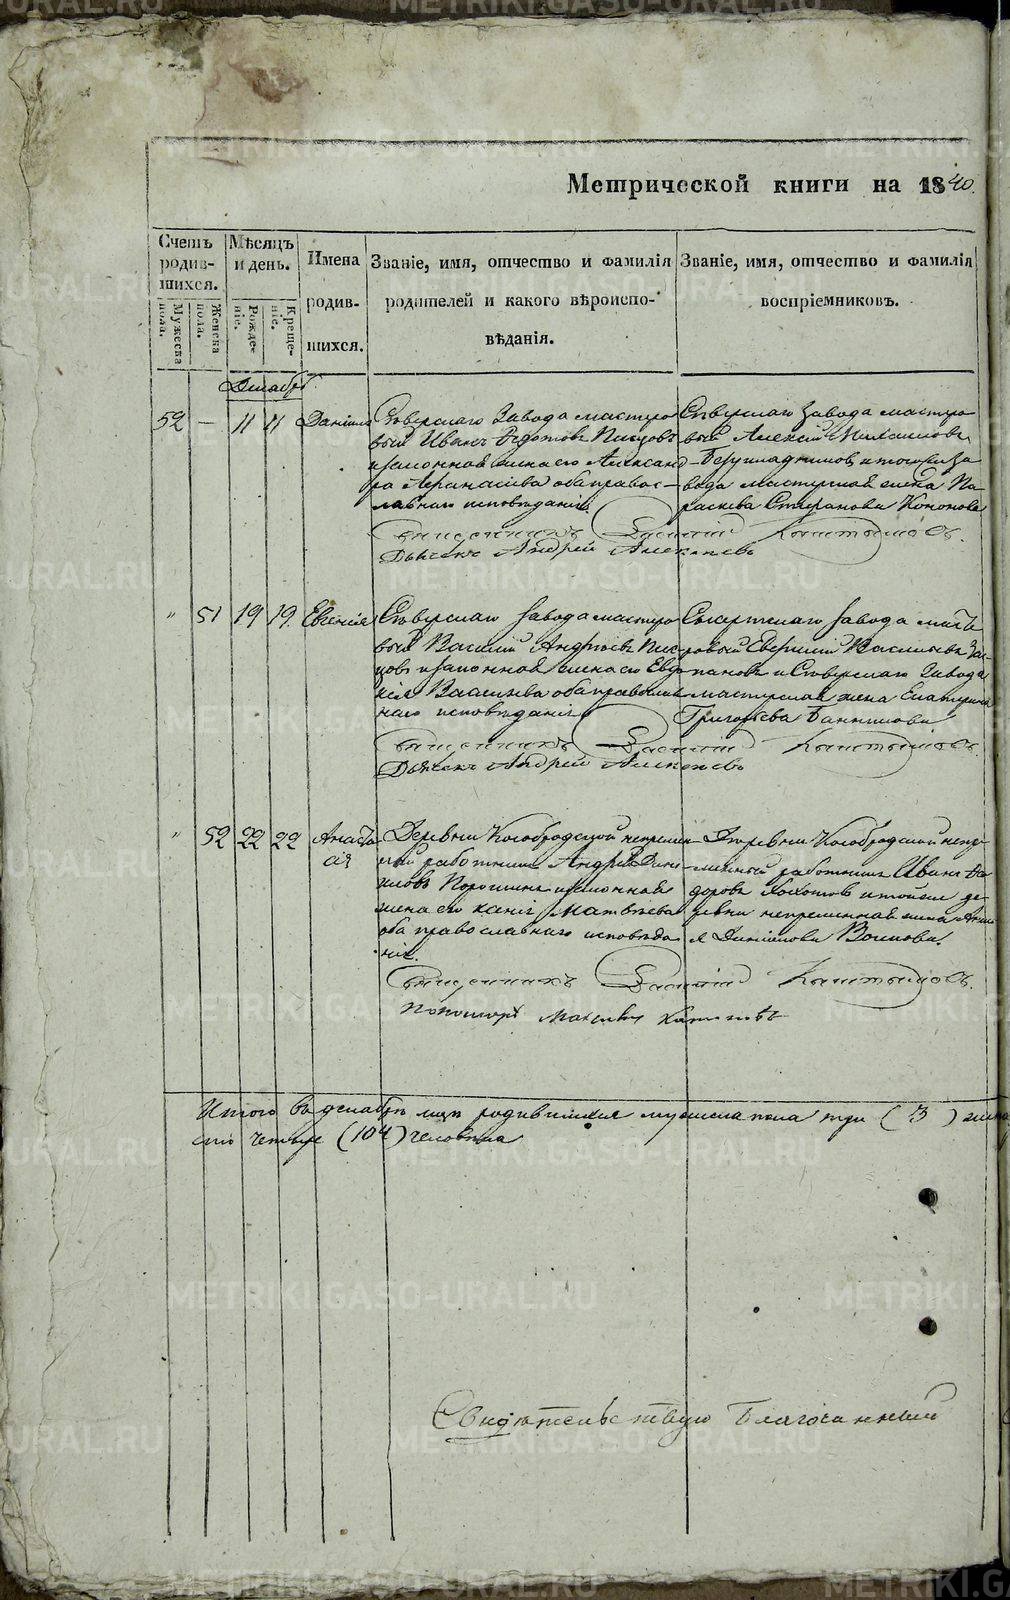 Метрической книги на 1840.
Счетъ родив- шихся.
Мѣсяцъ и день.
Имена родив- шихся.
Званіе, имя, отчество и фамилія родителей и какого вѣроиспо- вѣданія.
Званіе, имя, отчество и фамилія воспріемниковъ.
Мужеска пола.
Женска пола.
Рожде- ніе.
Креще- ніе.
Декабрь
52 — 11 11 Даніилъ
Сѣверскаго Завода мастеро
вый Иванъ Федотовъ Писцовъ
и законная жена его Алексан
ра Афанасіева оба правос-
лавнаго исповѣданія.
Сѣверскаго завода мастеро
вый Алексѣй Михаиловъ
и тогоже за
вода мастерская жена Па
раскева Стефанова Кононова
Священникъ Василій
Дьячекъ Андрей Алексѣевъ
" 51 19 19 Евгенія
Сѣверскаго завода мастеро
вый Василій Андреевъ Пис
цовъ и законная жена его Евдо
кія Васильева оба православ
наго исповѣданія
Сысертскаго завода масте
ровый Евгеній Васильевъ
и Сѣверскаго завода
мастерская жена Екатерина
Григорьева Банникова
Священникъ Василій
Дьячекъ Андрей Алексѣевъ
" 52 22 22 Анаста
сія
Деревни Кособродской непремен
ный работникъ Андрей Дани
ловъ Порошинъ и законная
жена его Ксенія Матвѣева
оба православнаго исповѣда
нія.
Деревни Кособродской непре
менный работникъ Иванъ Фе
доровъ и тойже де
ревни непременная жена
Даніилова
Священникъ Василій
Пономарь
Итого въ декабрѣ мцѣ родившихся мужеска пола три (3) женс
сто четыре (104) человѣка
Свидѣтельствую Благочинный
METRIKI.GASO-URAL.RU